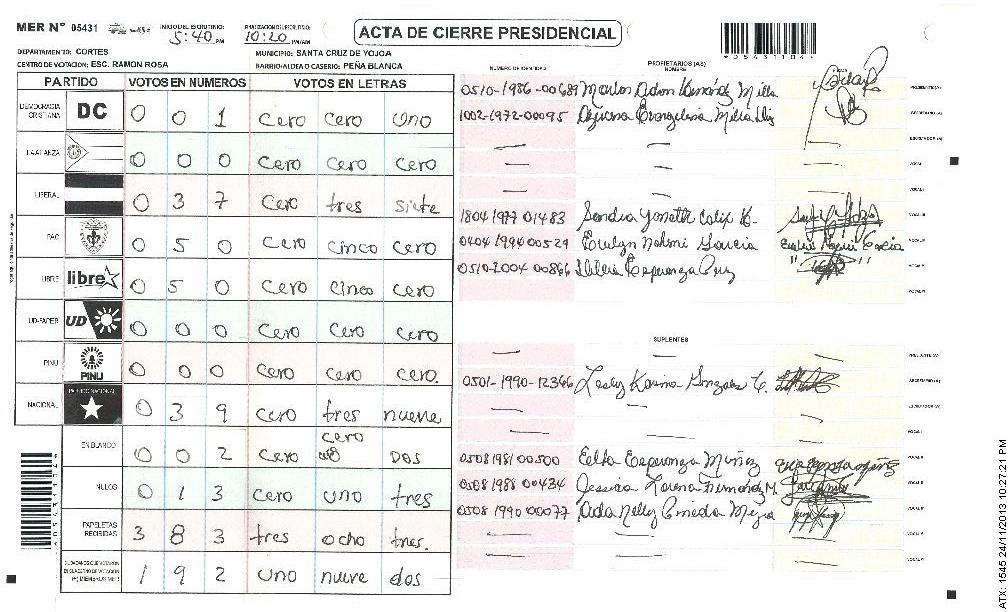 MER Nº 05431
INICIO DEL ESCRUTINIO: 5:40 PM
FINALIZACION DEL ESCRUTINIO: 10:20 PM/AM
ACTA DE CIERRE PRESIDENCIAL
*05431104*
DEPARTAMENTO: CORTES
MUNICIPIO: SANTA CRUZ DE YOJOA
CENTRO DE VOTACION: ESC. RAMON ROSA
BARRIO/ALDEA O CASERIO: PEÑA BLANCA
PARTIDO VOTOS EN NUMEROS VOTOS EN LETRAS
DEMOCRACIA CRISTIANA DC 0 0 1 cero cero uno
LA ALIANZA 0 0 0 cero cero cero
LIBERAL 0 3 7 cero tres siete
PAC 0 5 0 cero cinco cero
LIBRE libre 0 5 0 cero cinco cero
UD-FAPER UD 0 0 0 cero cero cero
PINU PINU 0 0 0 cero cero cero.
NACIONAL PARTIDO NACIONAL 0 3 9 cero tres nueve
EN BLANCO 0 0 2 cero cero dos
NULOS 0 1 3 cero uno tres
PAPELETAS RECIBIDAS 3 8 3 tres ocho tres.
CIUDADANOS QUE VOTARON 1 9 2 uno nueve dos
(+) MIEMBROS MER
NUMERO DE IDENTIDAD
PROPIETARIOS (AS)
NOMBRE
FIRMA
0510-1986-00689 Marlon
PRESIDENTE (A)
1002-1972-00095
SECRETARIO (A)
ESCRUTADOR (A)
VOCAL I
1804 1977 01483 Sandra Yaneth
0404 1994 00529 Evelyn Nohemi Garcia
0510-2004 00866 Esperanza Cruz
SUPLENTES
PRESIDENTE (A)
0501-1990-12366 Lesly Karina Gonzales
SECRETARIO (A)
ESCRUTADOR (A)
0508 1981 00500 Esperanza Muñoz
0508 1988 00434 Jessica Lorena Fernandez M.
0508 1990 00077 Nelly
ATX: 1545 24/11/2013 10:27:21 PM